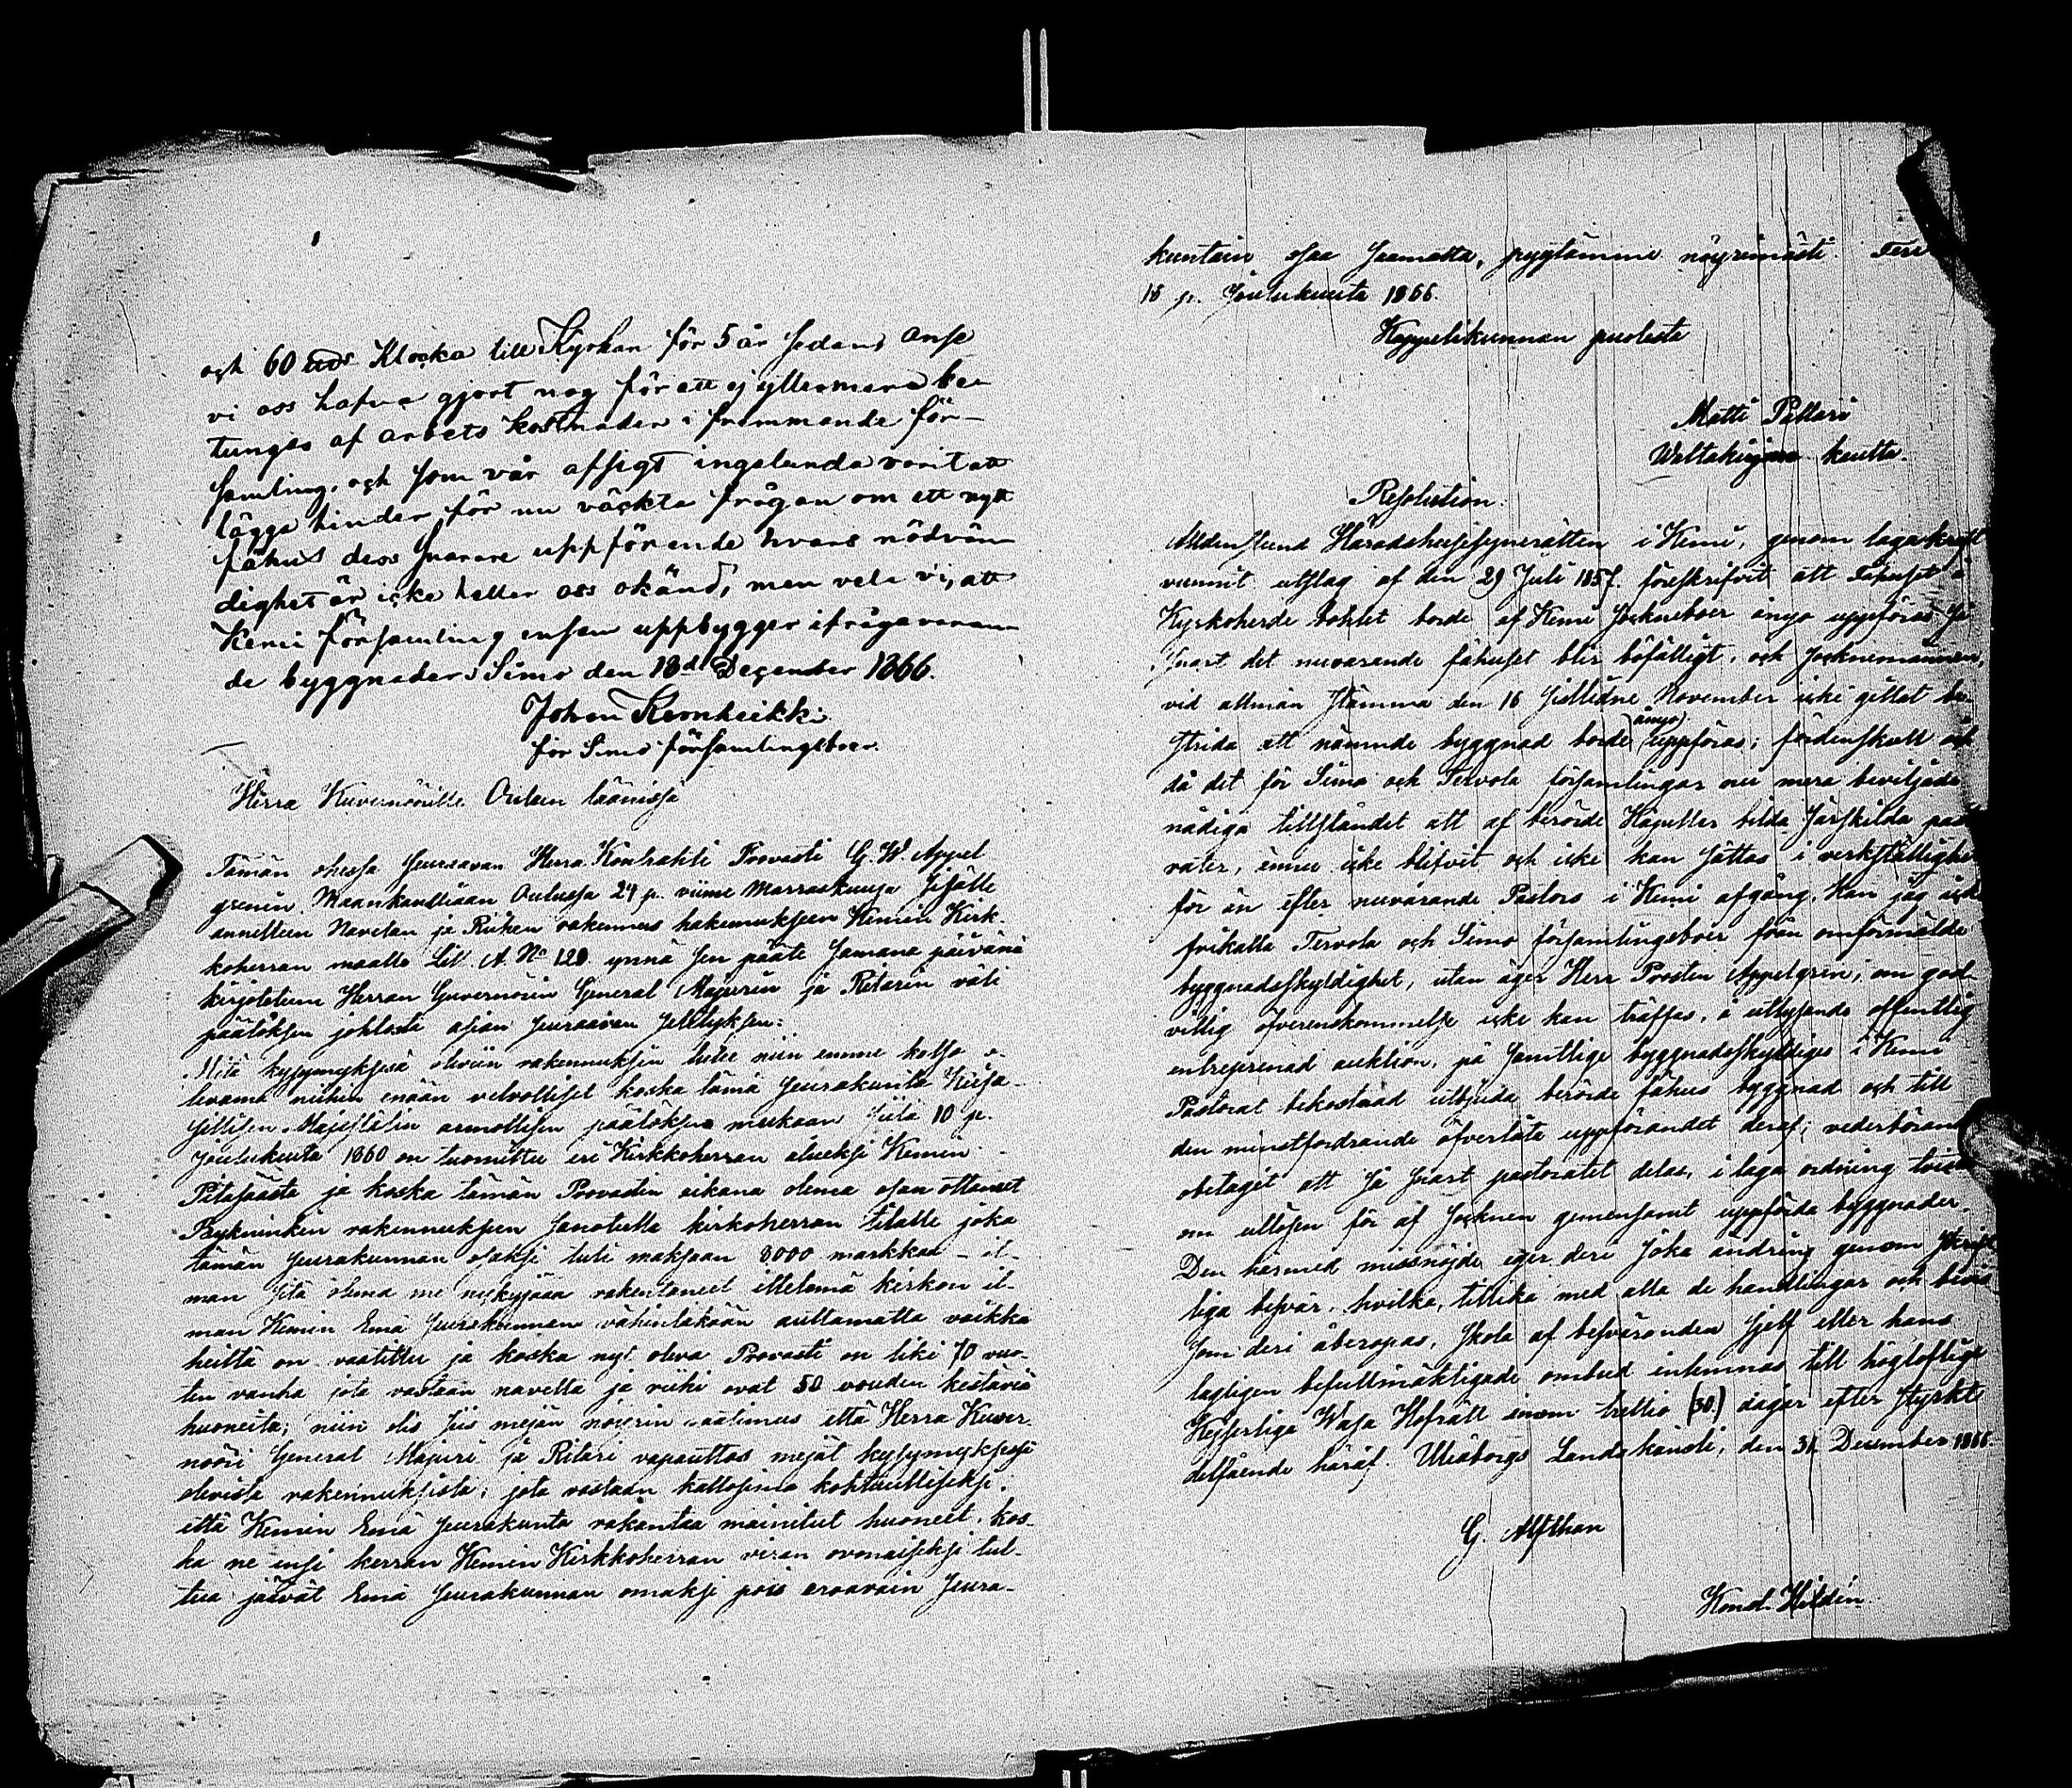 och 60 Klocka till Kyrkan för 5 år sedan, anse
vi oss hafva gjort nog för att ej yttermera be
tungas af arbets kostnader i främmande för-
samling, och som vår afsigt ingalunda varit att
lägga hinder för nu väckta frågan om ett nytt
fähus dess snarare uppförande hvars nödvän
dighet är icke heller oss okänd, men vela vi, att
Kemi församling ensam uppbygger ifrågavaran
de byggnader. Simo den 18d December 1866.
Johan Keonheikki
för Simo församlingsboer.
Herra Kuvernöörille Oulun läänissä
Tämän ohessa seuraavan Herra Kontrahti Provasti G. W. Appel
grenin Maankansliaan Oulussa 24 p. viime Marraskuussa sisälle
annettuun Navetan ja Riihen rakennus hakemukseen Kemin Kirk-
koherran maalle Lit. A. No 128 ynnä sen pääte samana päivänä
kirjoitetun Herran Guvernörin General Majurin ja Ritarin väli
päätöksen johdosta asian seuraavan selityksen:
Mitä kysymyksesä oleviin rakennuksiin tulee niin emme katso o-
levamme niihen enään velvolliset koska tämä seurakunta Keisa-
rillisen Majestetin armollisen päätöksen mukaan siitä 10 p.
Joulukuuta 1860 on tuomittu eri Kirkkoherran alueksi Kemin
Pitäjäästä ja koska tämän Provastin aikana olema osan ottaneet
Bykningin rakennukseen sanotulla kirkoherran tilalla joka
tämän seurakunnan osaksi tuli maksaan 3000 markkaa - il-
man sitä olema me nykyjään rakentaneet ittelemä kirkon il-
man Kemin Emä seurakunnan vähintäkään auttamatta vaikka
heittä on vaatittu ja koska nyt oleva Provasti on liki 70 vuo-
ten vanha jota vastaan navetta ja riihi ovat 50 vouden kestäviä
huoneita; niin olis siis mejän nöyrin vaatimus että Herra Kuver
nööri General Majuri ja Ritari vapauttas mejät kysymyksessä
olevista rakennuksista; jota vastaan kattosima kohtuulliseksi,
että Kemin Emä seurakunta rakentaa mainitut huoneet, kos-
ka ne ensi kerran Kemin Kirkkoherran viran avonaiseksi tul-
tua jäävät Emä seurakunnan omaksi pois eroavain seura-
kuntain osaa saamatta, pyytämme nöyrimästi.
18 p. Joulukuuta 1866.
Kappelikunnan puolesta
Matti Pellari
Waltakirjan kautta.
Resolution.
Alldenstund Häradshusesynerätten i Kemi, genom lagakraft
vunnit utslag af den 29 Juli 1857. föreskrifvit att Fähuset å
Kyrkoherde bohlet borde af Kemi Sockneboer ånyo uppföras så
snart det nuvarande fähuset blir bofälligt, och Socknemännen,
vid allmän Stämma den 16 sistledne November icke gittat be-
strida att nämnde byggnad borde (ånyo) uppföras; fördenskull och
då det för Simo och Tervola församlingar nu mera beviljade
nådiga tillståndet att af berörde Kapeller bilda särskilda pasto
rater, ännu icke blifvit och icke kan sättas i verkställighet
för än efter nuvarande Pastors i Kemi afgång, kan jag icke
frikalla Tervola och Simo församlingsboer från omförmälde
byggnadsskyldighet, utan äger Herr Prosten Appelgren, om god-
villig öfverenskommelse icke kan träffas, å utlysande offentlig
entreprenad auktion, på samtlige byggnadsskyldiges i Kemi
Pastorat bekostnad utbjuda berörde fähus byggnad och till
den minstfordrande öfverlåta uppförandet deraf; vederbörande
obetaget att så snart pastoratet delas, i laga ordning tvista
om utlösen för af Socknen gemensamt uppförda byggnader.
Den härmed missnöjde eger deri söka ändring genom skrift
liga besvär, hvilka, tillika med alla de handlingar och bevis
som deri åberopas, skola af besväranden sjelf eller hans
lagligen befullmäktigade ombud inlemnas till höglofliga
Kejserliga Wasa Hofrätt inom trettio (30) dagar efter styrkt
delfående häraf. Uleåborgs Landskansli, den 31 December 1866.
G. Alfthan
Konst. Hildén